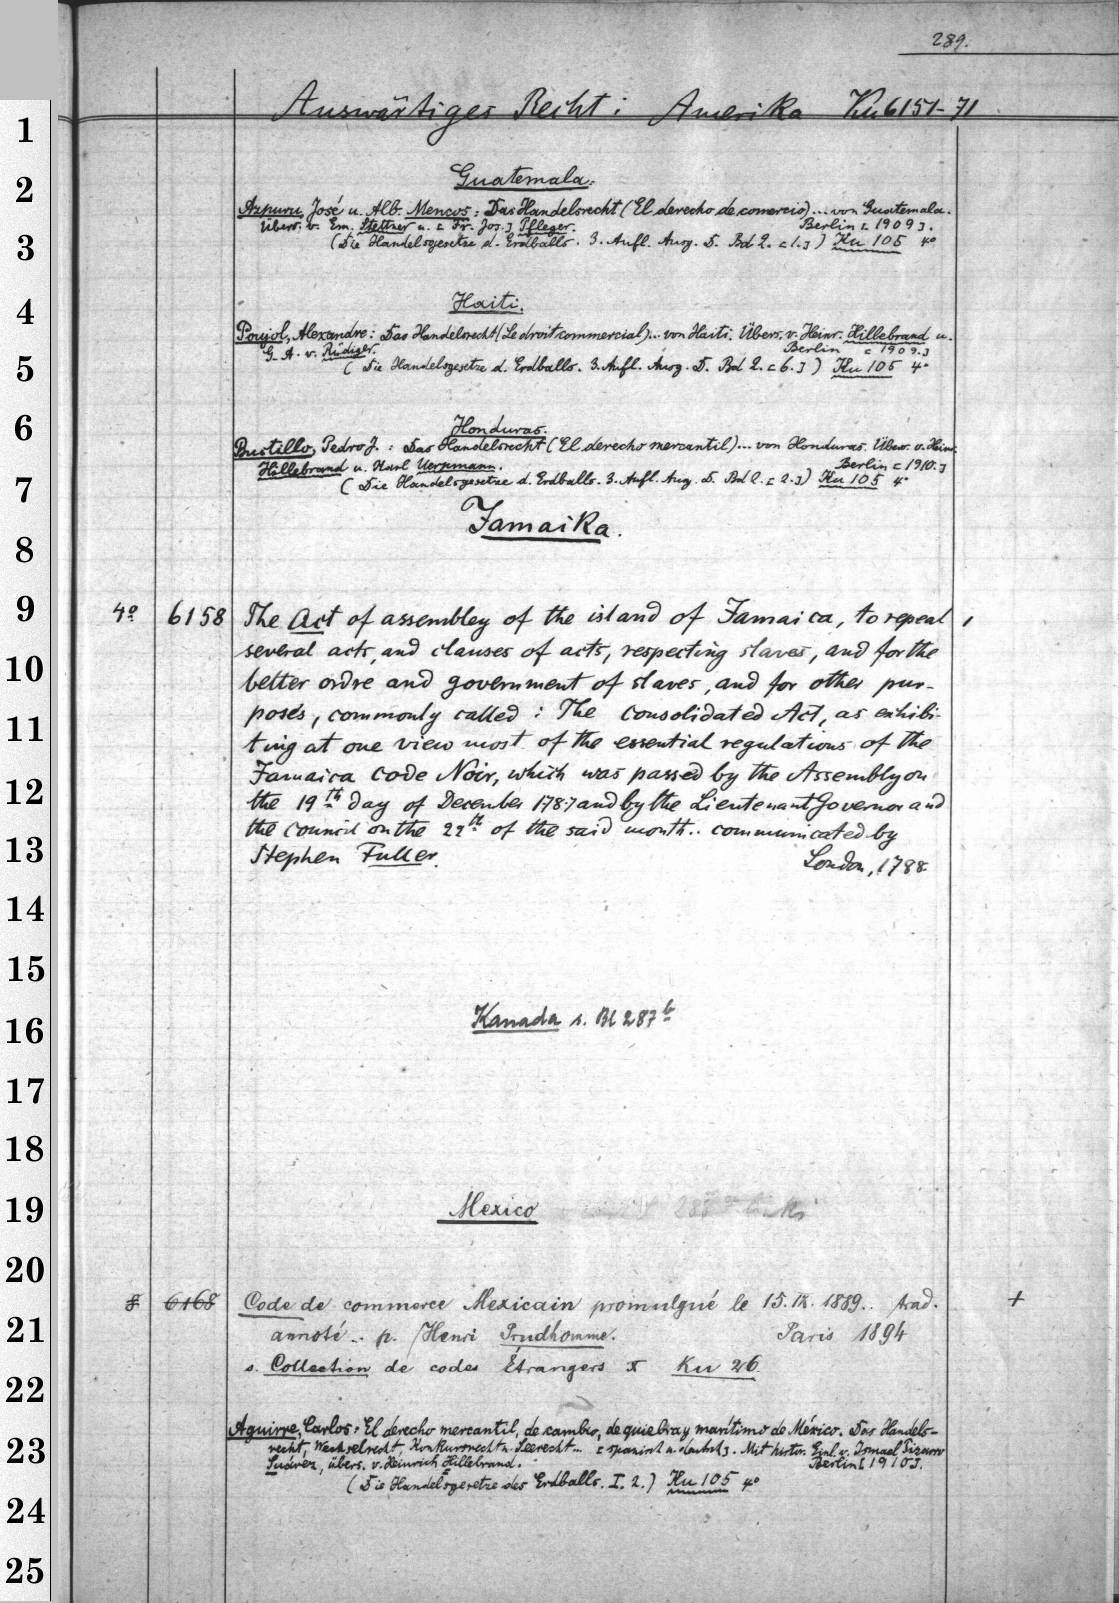 289.
Auswärtiges Recht: Amerika Ku 6151-71
Guatemala.
Azpuru, José u. Alb. Mencos: Das Handelsrecht (El derecho de comercio)... von Guatemala.
Übers. v. Em. Stettner u. [Fr. Jos.] Pfleger. Berlin [1909].
(Die Handelsgesetze d. Erdballs. 3. Aufl. Ausg. D. Bd 2. [1.]) Ku 105 4°
Haiti.
Poujol, Alexandre: Das Handelsrecht (Le droit commercial)... von Haiti. Übers. v. Heinr. Hillebrand u.
G. A. v. Rüdiger. Berlin [1909.]
(Die Handelsgesetze d. Erdballs. 3. Aufl. Ausg. D. Bd 2. [6.]) Ku 105 4°
Honduras.
Bustillo, Pedro J.: Das Handelsrecht (El derecho mercantil)... von Honduras. Übers. v. Heinr.
Hillebrand u. Karl Uerpmann. Berlin [1910.]
(Die Handelsgesetze d. Erdballs. 3. Aufl. Ausg. D. Bd 2. [2.]) Ku 105 4°
Jamaika.
4° 6158 The Act of assembley of the island of Jamaica, to repeal
several acts, and clauses of acts, respecting slaves, and for the
better ordre and government of slaves, and for other pur-
poses, commonly called: The consolidated Act, as exhibi-
ting at one view most of the essential regulations of the
Jamaica Code Noir, which was passed by the Assembly on
the 19th day of December 1787 and by the Lieutenant Governor and
the council on the 22th of the said month.. communicated by
Stephen Fuller. London, 1788
Kanada s. Bl 287b
Mexico
8 6168 Code de commerce Mexicain promulgué le 15. IX. 1889.. trad. +
annoté.. p. Henri Prudhomme. Paris 1894
s. Collection de codes Étrangers Ku 26
Aguirre, Carlos: El derecho mercantil, de cambio, de quiebra y marítimo de México. Das Handels-
recht, Wechselrecht, Konkursrecht u. Seerecht... [spanisch u. deutsch]. Mit histor. Einl. v. Ismael Pizarro
Suárez, übers. v. Heinrich Hillebrand. Berlin [1910].
(Die Handelsgesetze des Erdballs. I. 2.) Ku 105 4°
1
2
3
4
5
6
7
8
9
10
11
12
13
14
15
16
17
18
19
20
21
22
23
24
25